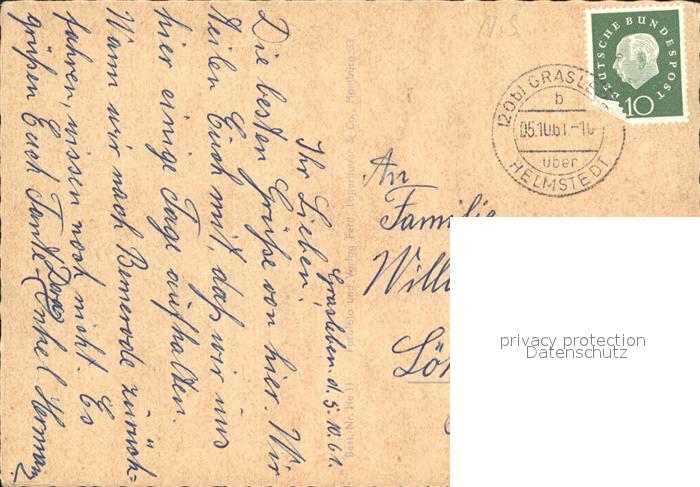 Grasleben d. 5.10.61.
Ihr Lieben!
Die besten Grüße von hier. Wir
teilen Euch mit, daß wir uns
hier einige Tage aufhalten.
Wann wir nach Bemerode zurück-
fahren, wissen noch nicht. Es
grüßen Euch Tante Dora
Onkel Hermann
An
Familie
Willi
Lö
DEUTSCHE BUNDESPOST
10
(20b) GRASLEBEN
b
05.10.61-10
über
HELMSTEDT
N.S
Best.-Nr. He 11
privacy protection
Datenschutz